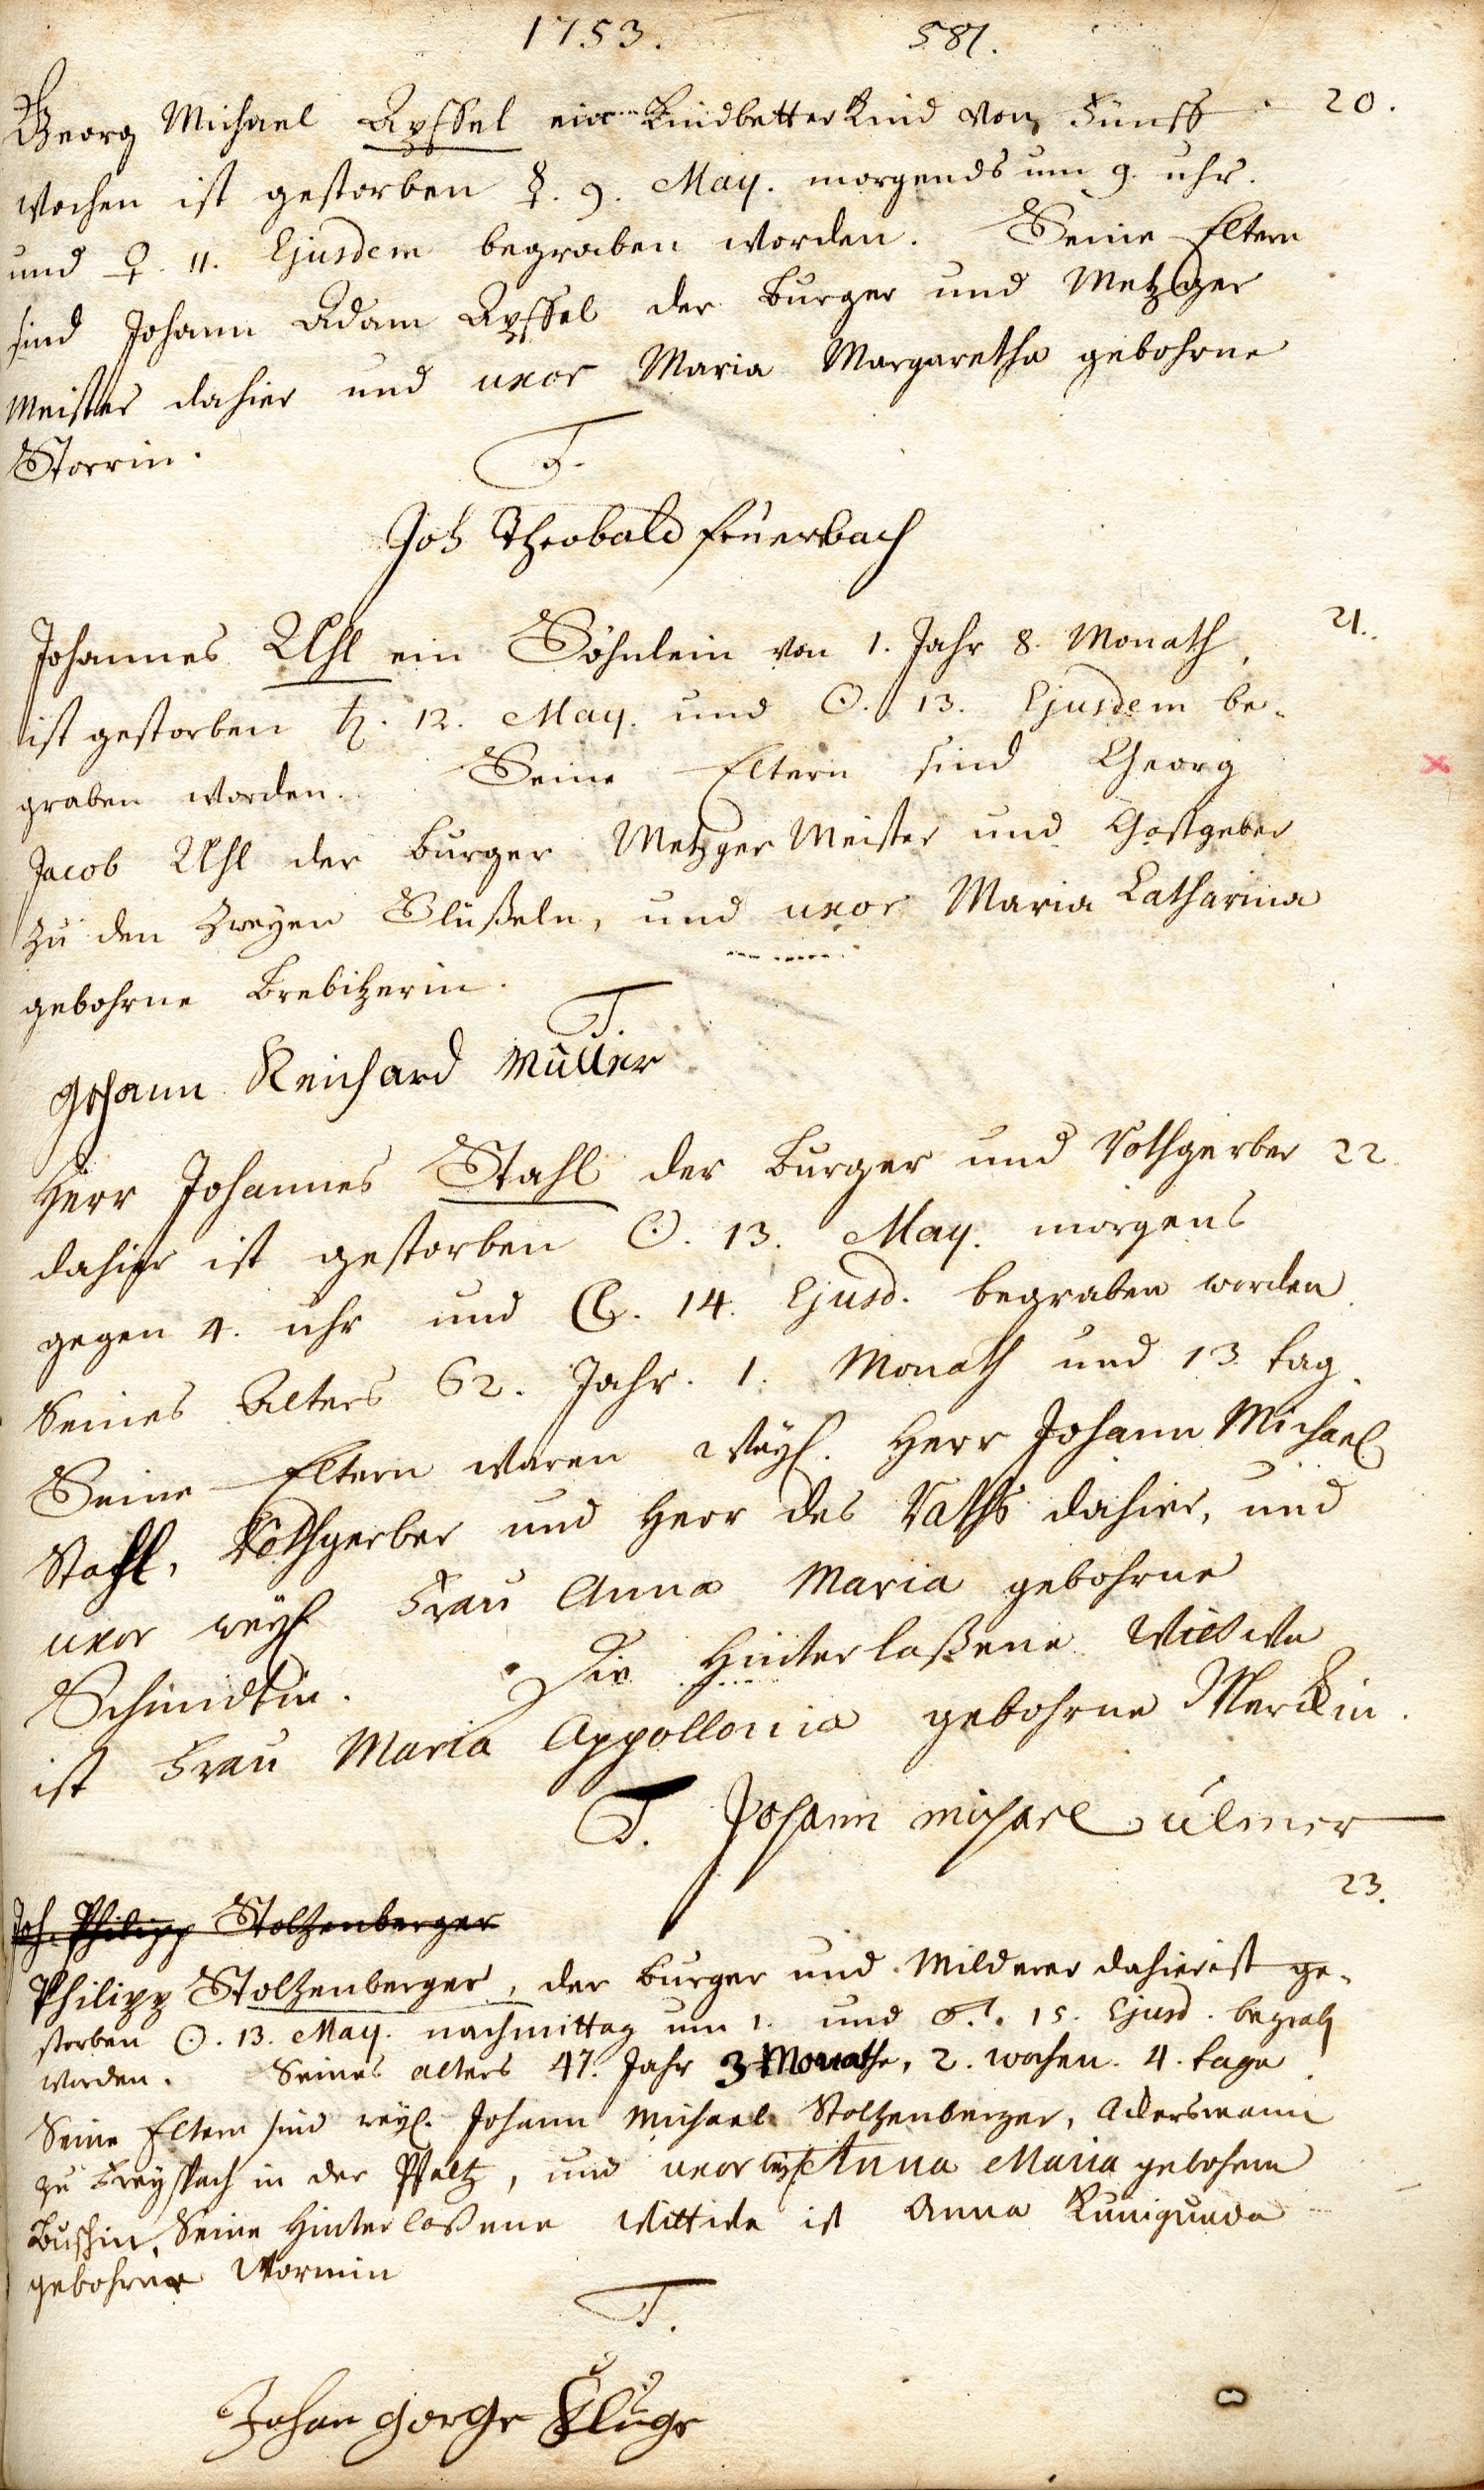 1753. 581.
Georg Michael Apffel ein Kindbetter Kind von Fünff 20.
wochen ist gestorben ☿. 9. May. morgends um 9. uhr.
und ♀. 11. Ejusdem begraben worden. Seine Eltern
sind Johann Adam Apffel der burger und Metzger
Meister dahier und uxor Maria Margaretha gebohrne
Storrin.
T.
Joh Theobald feuerbach
Johannes Uhl ein Söhnlein von 1. Jahr 8. Monath, 21.
ist gestorben ♄. 12. May. und ☉. 13. Ejusdem be-
graben worden. Seine Eltern sind Georg
Jacob Uhl der burger Metzger Meister und Gastgeber
zu den Zweyen Slüßeln, und uxor Maria Catharina
gebohrne Brebitzerin.
T.
Johann Reichard Müller
Herr Johannes Stahl der burger und Rothgerber 22.
dahier ist gestorben ☉. 13. May. morgens
gegen 4. uhr und ☾. 14. Ejusd. begraben worden.
Seines Alters 62. Jahr. 1. Monath und 13 tag.
Seine Eltern waren Weyl. Herr Johann Michael
Stahl, Rothgerber und Herr des Raths dahier, und
uxor weyl Frau Anna Maria gebohrne
Schmidtin. Die Hinterlaßene Wittwe
ist Frau Maria Appollonia gebohrne Merckin.
T. Johann michael ulmer
23.
Joh. Philipp Stoltzenberger
Philipp Stoltzenberger, der burger und Milderer dahier ist ge-
storben ☉. 13. May. nachmittag um 1. und ♂. 15. Ejusd. begrab
worden. Seines alters 47. Jahr 3 Monathe, 2. wochen. 4. tage.
Seine Eltern sind weyl. Johann Michael Stoltzenberger, Ackersmann
zu Freyspach in der Pfaltz, und uxor weyl Anna Maria gebohrne
Buschin, Seine Hinterlaßene Wittwe ist Anna Kunigunda
gebohrne Wormin
T.
Johan gorge Kluge